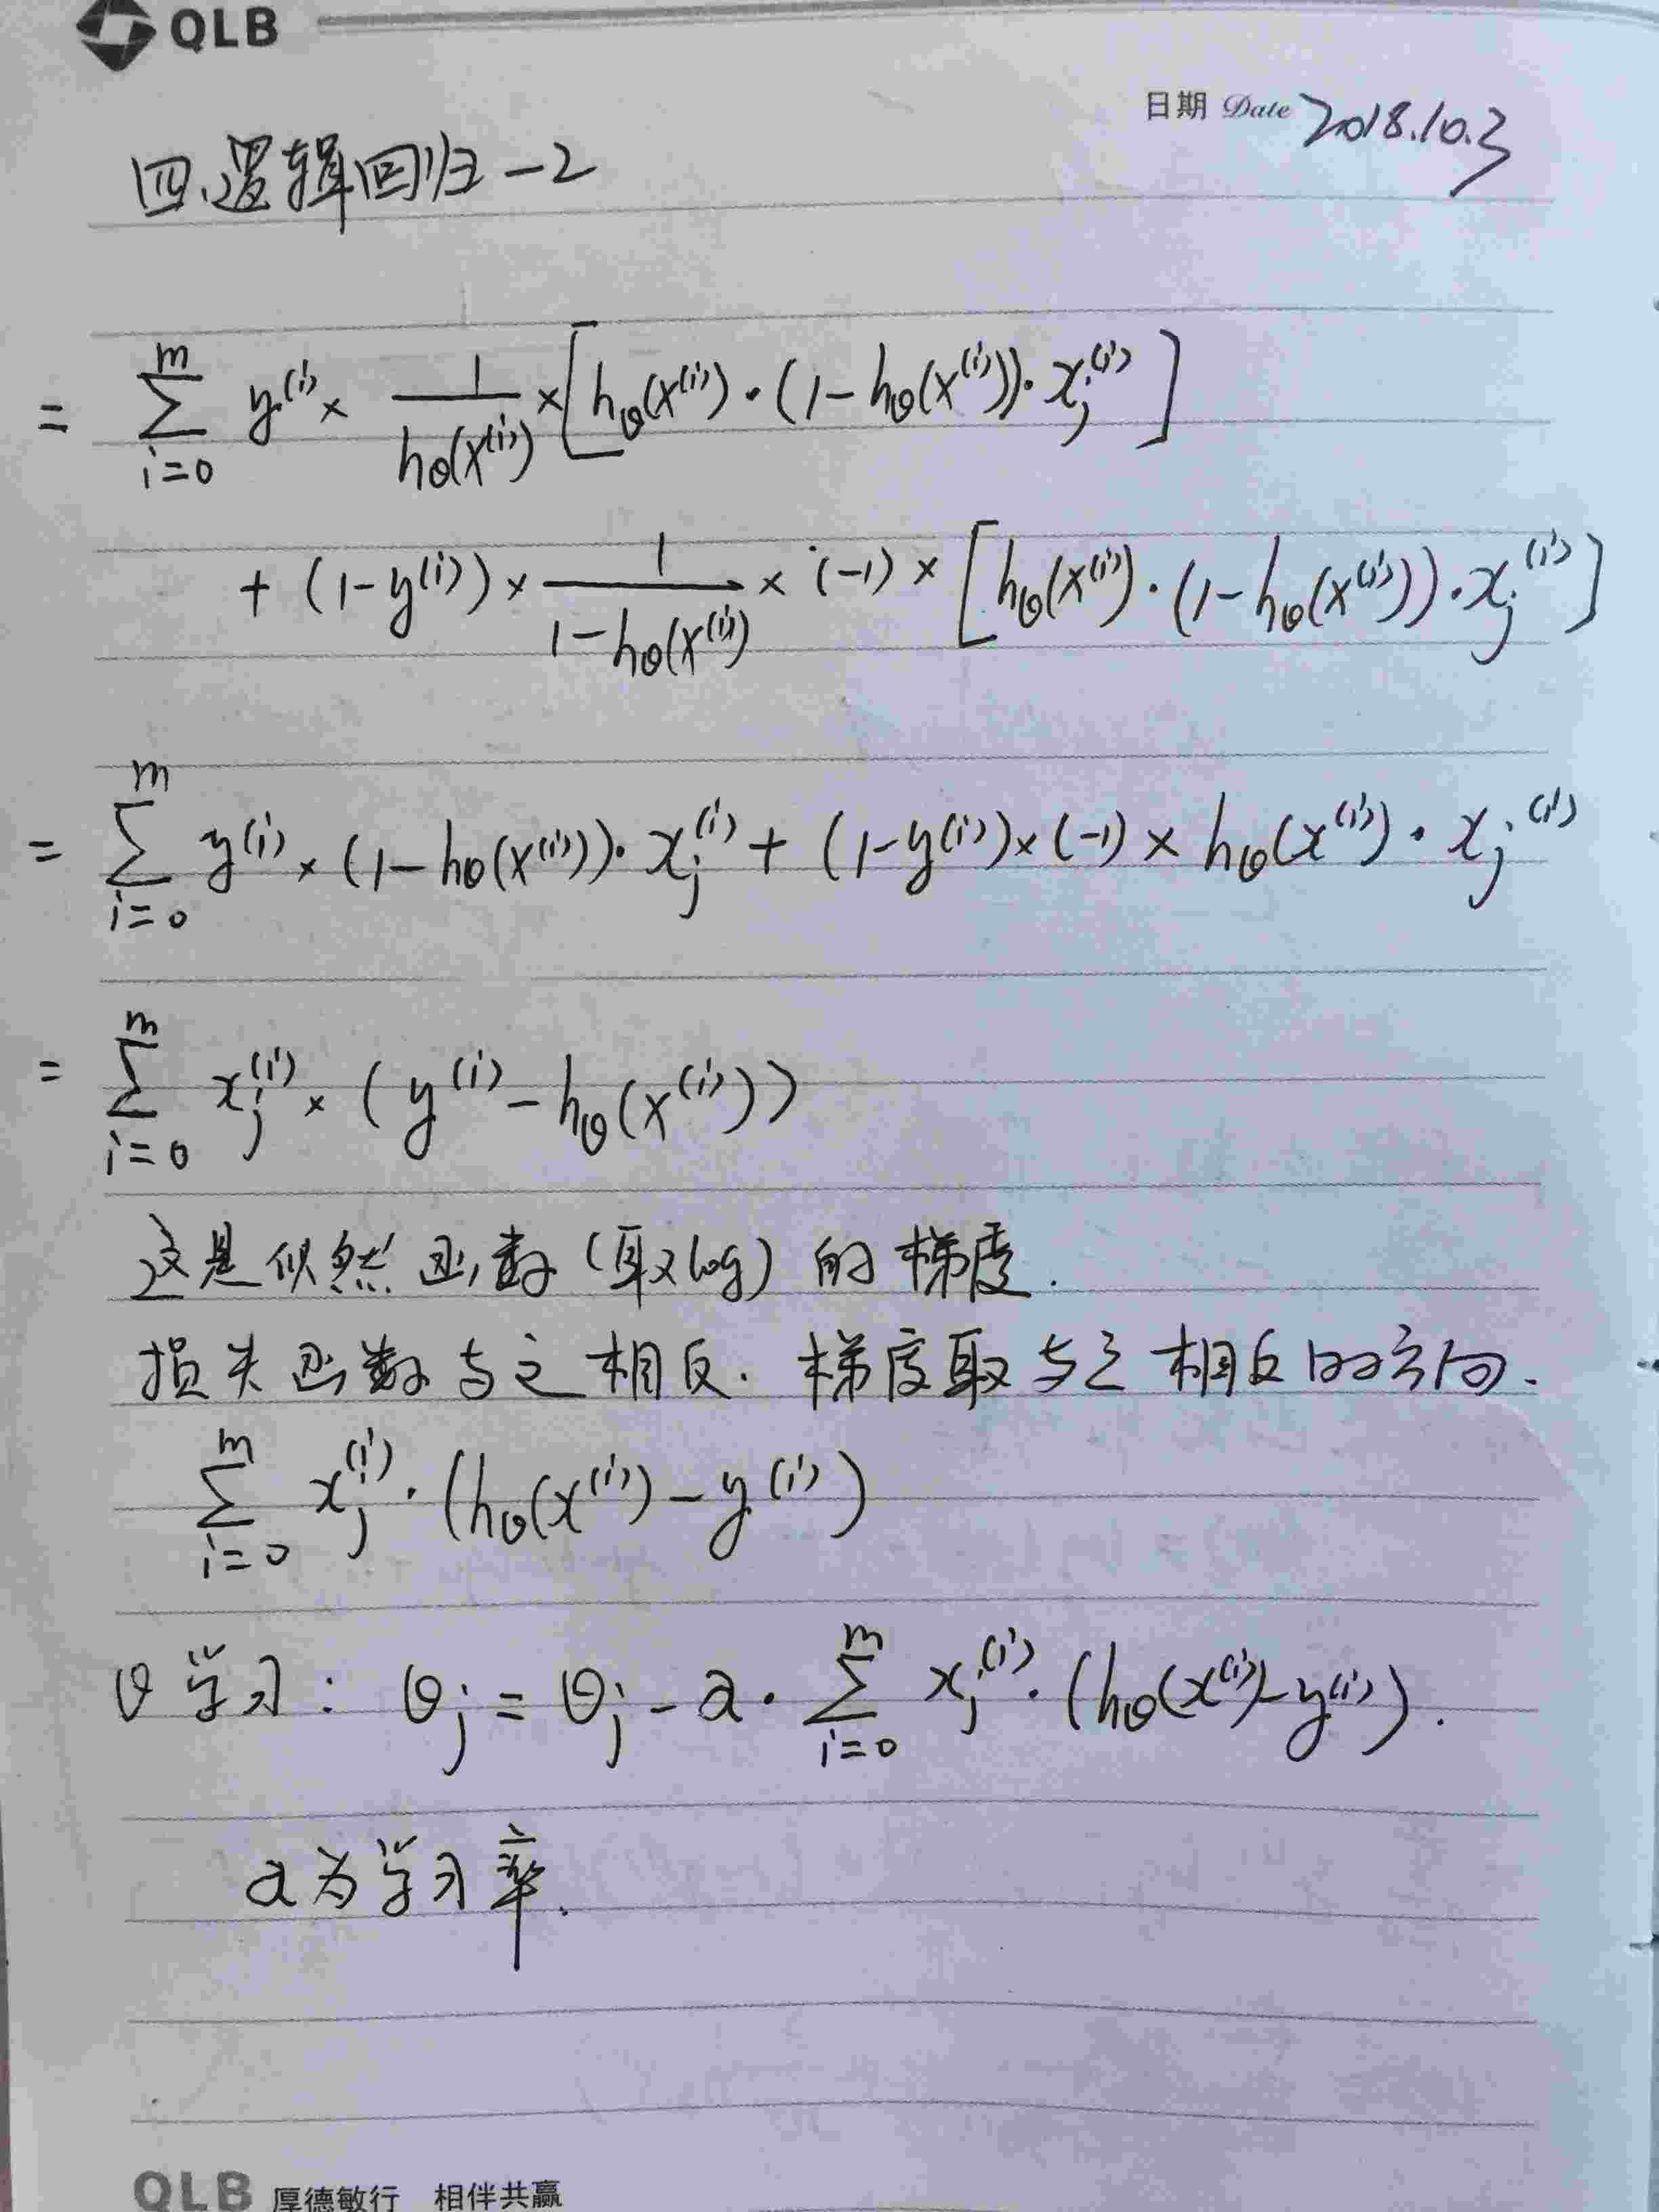 QLB
日期 Date 2018.10.3
四、逻辑回归-2
= \sum_{i=0}^{m} y^{(i)} × \frac{1}{h_θ(x^{(i)})} × [h_θ(x^{(i)}) · (1-h_θ(x^{(i)})) · x_j^{(i)}]
+ (1-y^{(i)}) × \frac{1}{1-h_θ(x^{(i)})} × (-1) × [h_θ(x^{(i)}) · (1-h_θ(x^{(i)})) · x_j^{(i)}]
= \sum_{i=0}^{m} y^{(i)} × (1-h_θ(x^{(i)})) · x_j^{(i)} + (1-y^{(i)}) × (-1) × h_θ(x^{(i)}) · x_j^{(i)}
= \sum_{i=0}^{m} x_j^{(i)} × (y^{(i)} - h_θ(x^{(i)}))
这是似然函数(取log)的梯度.
损失函数与之相反. 梯度取与之相反的方向.
\sum_{i=0}^{m} x_j^{(i)} · (h_θ(x^{(i)}) - y^{(i)})
θ学习: θ_j = θ_j - a · \sum_{i=0}^{m} x_j^{(i)} · (h_θ(x^{(i)}) - y^{(i)}).
a为学习率.
QLB 厚德敏行 相伴共赢